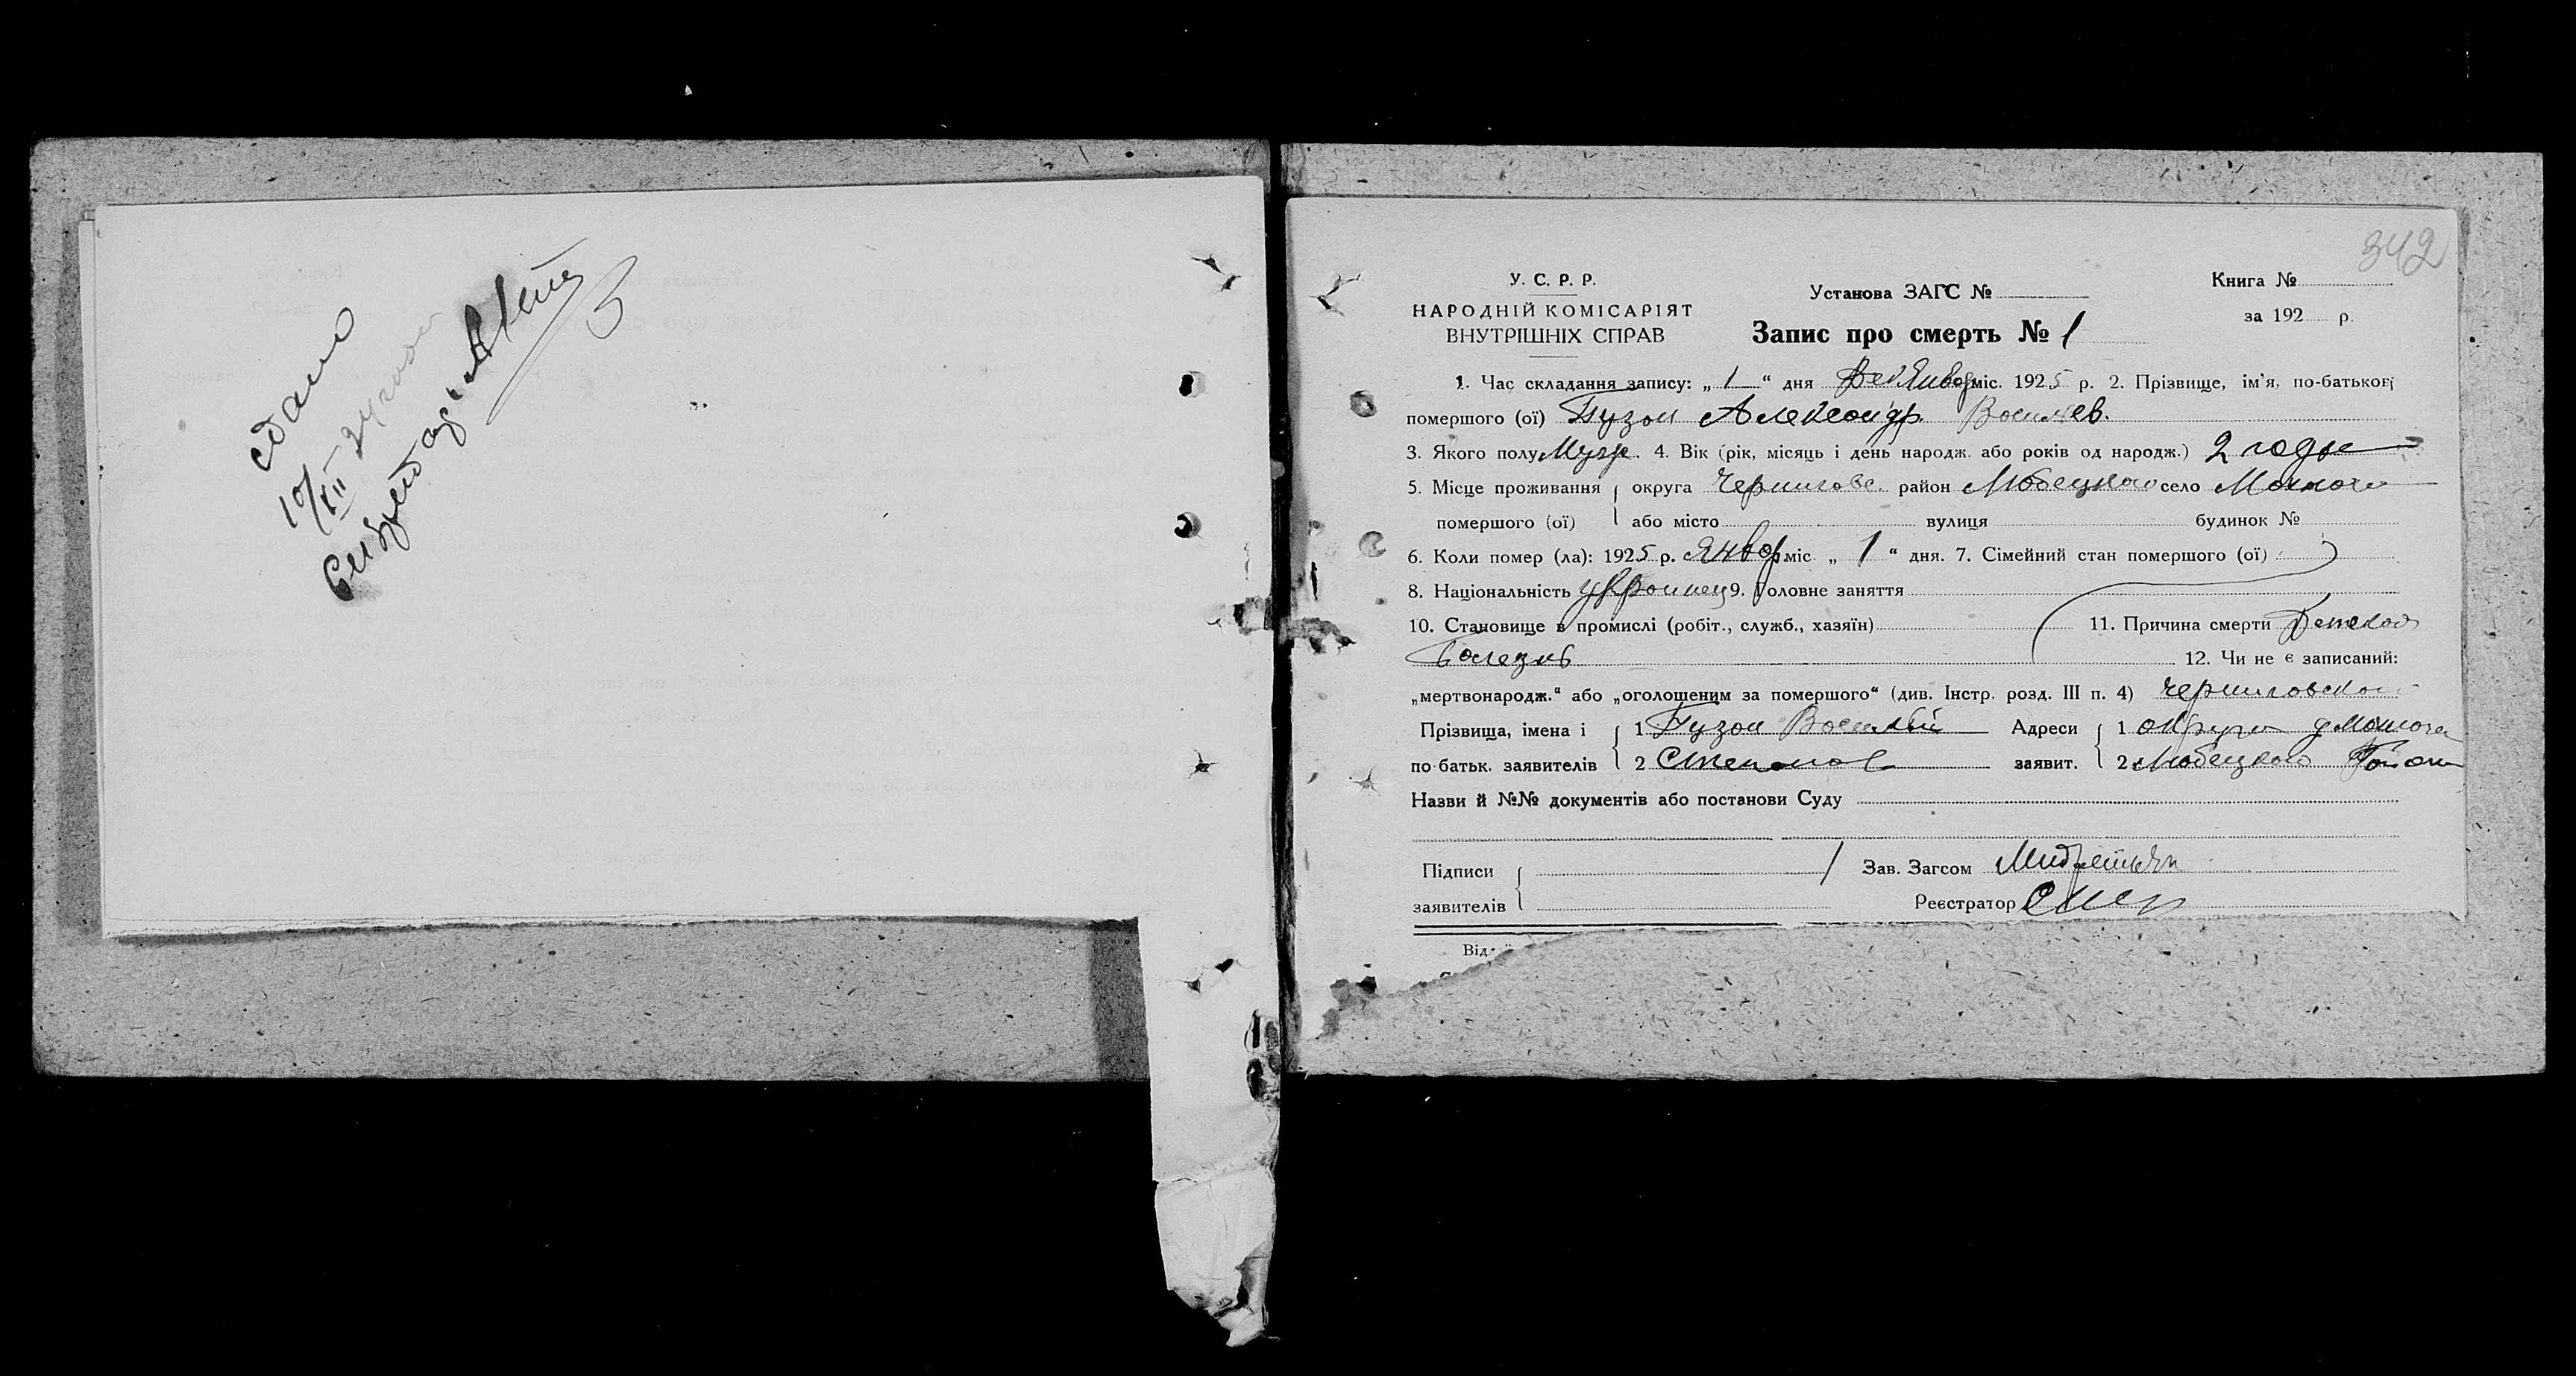 сдано
10/XII 24 года
342
У. С. Р. Р.
НАРОДНІЙ КОМІСАРІЯТ
ВНУТРІШНІХ СПРАВ
Установа ЗАГС №
Запис про смерть № 1
Книга №
за 192 р.
1. Час складання запису: „ 1 “ дня Январ міс. 1925 р. 2. Прізвище, ім'я, по-батькові
помершого (ої) Пузон Александр Василев.
3. Якого полу Мужс. 4. Вік (рік, місяць і день народж. або років од народж.) 2 годы
5. Місце проживання округа Черниговс. район Любецкого село
помершого (ої) або місто вулиця будинок №
6. Коли помер (ла): 1925 р. Январ міс. „ 1 “ дня. 7. Сімейний стан помершого (ої)
8. Національність украинец 9. Головне заняття
10. Становище в промислі (робіт., служб., хазяїн) 11. Причина смерти Детская
болезнь 12. Чи не є записаний:
„мертвонародж.“ або „оголошеним за помершого“ (див. Інстр. розд. III п. 4) Черниговской
Прізвища, імена і 1 Пузон Василий Адреси 1 округи
по-батьк. заявителів 2 Степанов заявит. 2 Любецкого Района
Назви й №№ документів або постанови Суду
Підписи Зав. Загсом
заявителів Реєстратор
Від